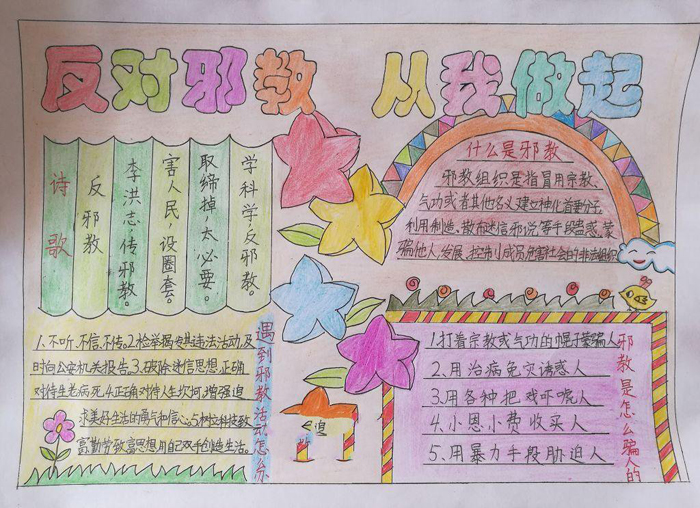 反对邪教 从我做起
诗歌
反邪教
李洪志,传邪教。
害人民,设圈套。
取缔掉,太必要。
学科学,反邪教。
什么是邪教
邪教组织是指冒用宗教、
气功或者其他名义建立神化首要分子,
利用制造、散布迷信邪说等手段蛊惑、蒙
骗他人,发展、控制成员,危害社会的非法组织
遇到邪教活动怎么办
1.不听、不信、不传。2.检举揭发其违法活动,及
时向公安机关报告。3.破除迷信思想,正确
对待生老病死。4.正确对待人生坎坷,增强追
求美好生活的勇气和信心。5.树立科技致
富,勤劳致富思想,用自己双手创造生活。
邪教是怎么骗人的
1.打着宗教或气功的幌子蒙骗人
2、用治病免灾诱惑人
3.用各种把戏吓唬人
4、小恩小费收买人
5、用暴力手段胁迫人